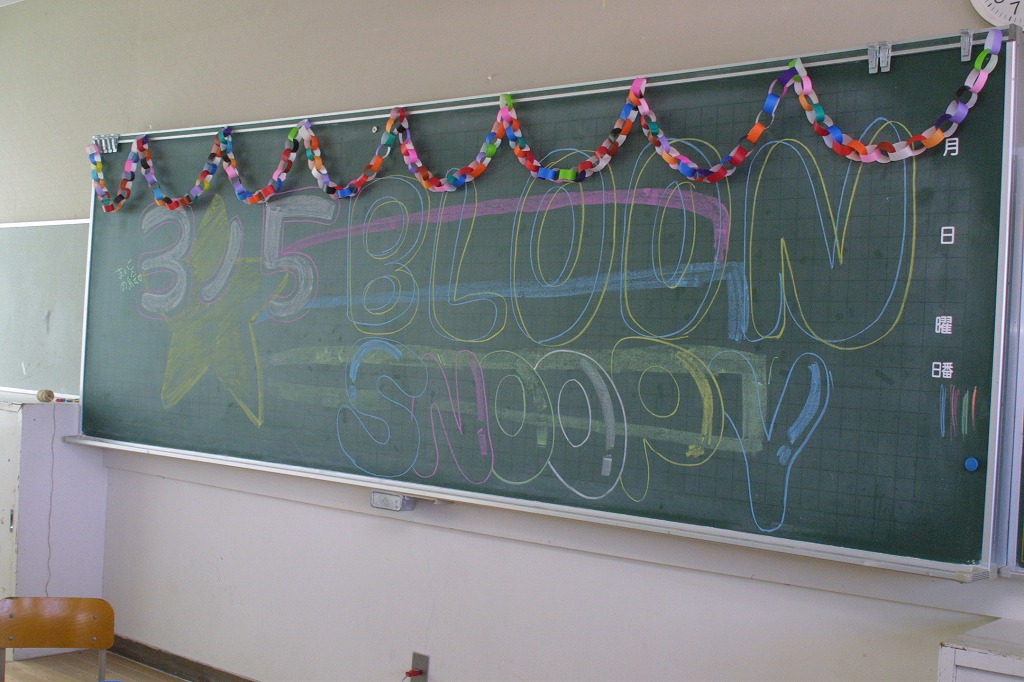 3 ノ 5 BLOON
SNOOPY
月
日
曜
日番